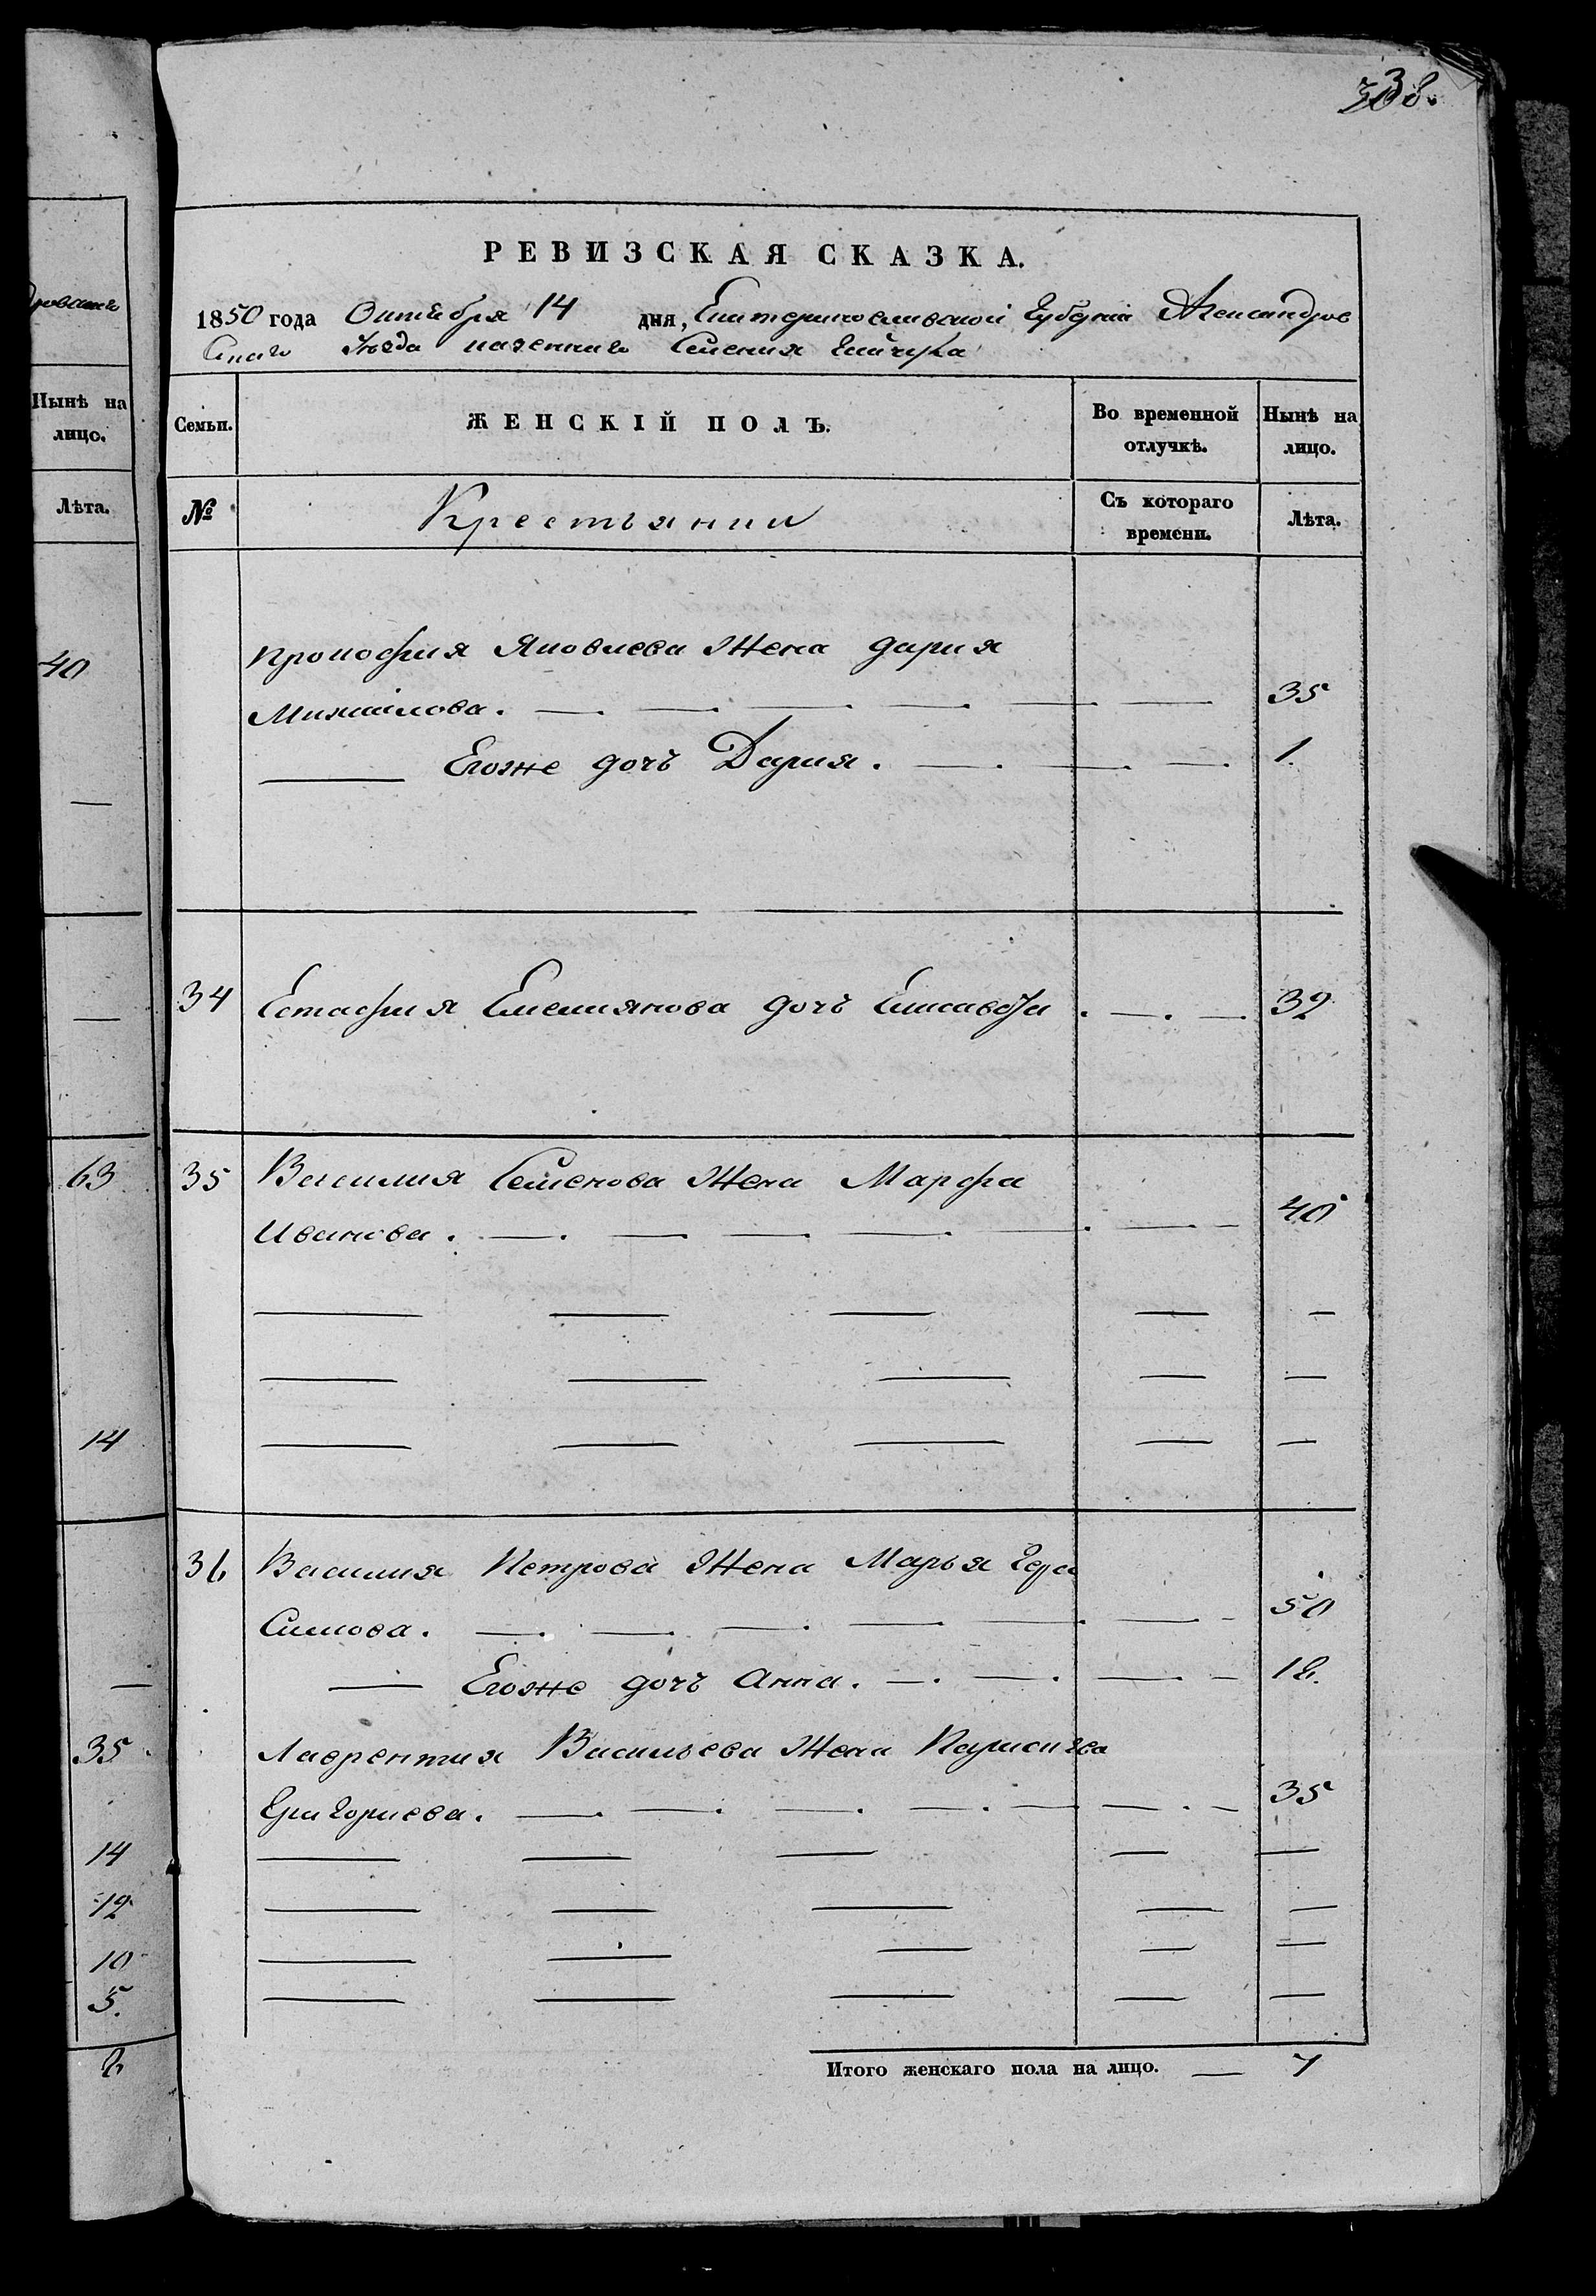 338.
РЕВИЗСКАЯ СКАЗКА.
1850 года Октября 14 дня, Екатеринославской Губернiи Александров
Скаго Уезда казеннаго Селения Гайчука
дровскаго
Нынѣ на лицо.
Лѣта.
40
—
—
63
14
—
35
14
12
10
5.
6
Семьи. ЖЕНСКIЙ ПОЛЪ. Во временной отлучкѣ. Нынѣ на лицо.
№ Крестьянки Съ котораго времени. Лѣта.
Прокофия Яковлева Жена дария
Михайлова. — 35
— Егоже дочъ Дария. — 1.
34 Естафия Емелиянова дочъ Елисавѳта . — 32
35 Василия Семенова Жена Марфа
Иванова. — 40
36 Василия Петрова Жена Марья Гера
Симова. — 50
— Егоже дочъ Анна. — 16.
Лаврентия Васильева Жена
Григориева. — 35
Итого женскаго пола на лицо. — 7